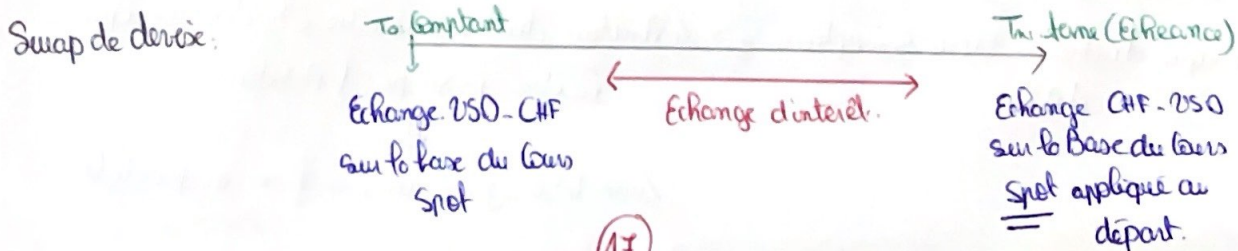 Swap de devise.
To Comptant
Tn. terme (Echeance)
Echange USD - CHF
sur la base du Cours
Spot
Echange d'interêt.
Echange CHF - USD
sur la Base du Cours
Spot appliqué au
départ.
17